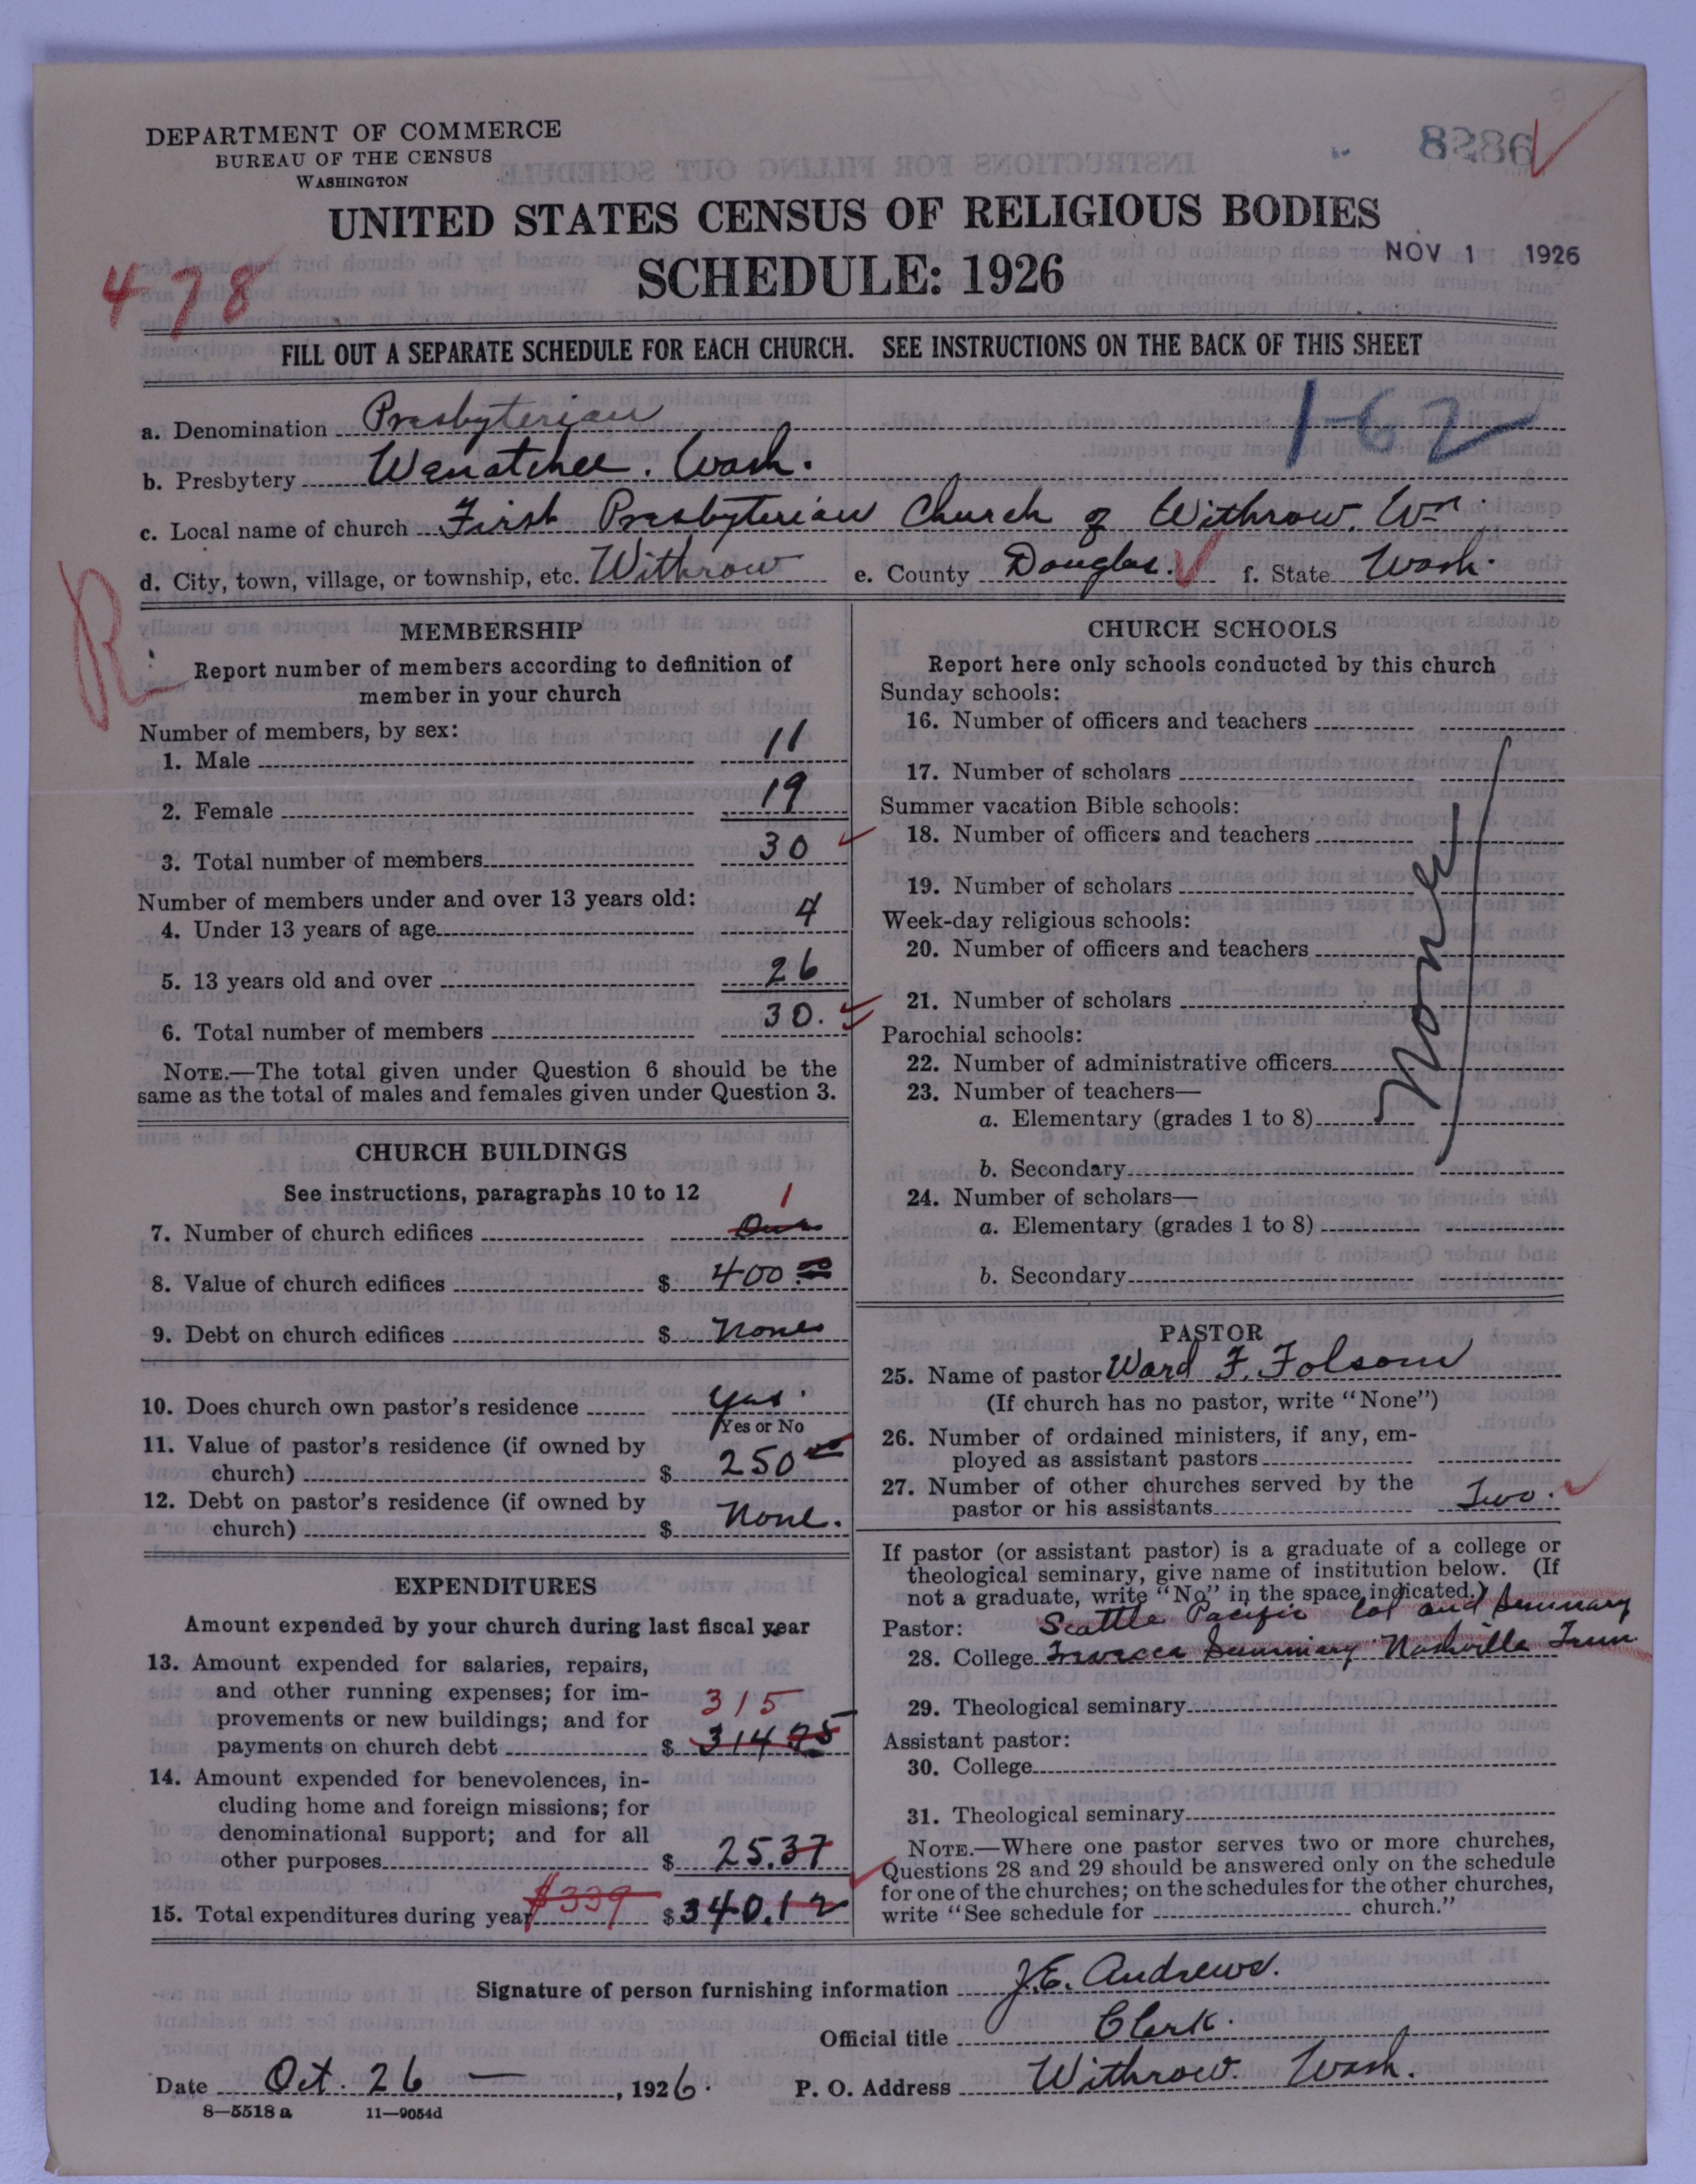 DEPARTMENT OF COMMERCE
BUREAU OF THE CENSUS
WASHINGTON
UNITED STATES CENSUS OF RELIGIOUS BODIES
NOV 1 1926
SCHEDULE: 1926
478
FILL OUT A SEPARATE SCHEDULE FOR EACH CHURCH. SEE INSTRUCTIONS ON THE BACK OF THIS SHEET
1-62
a. Denomination Presbyterian
b. Presbytery Wenatchee. Wash.
c. Local name of church First Presbyterian Church of Withrow. Wn.
d. City, town, village, or township, etc. Withrow e. County Douglas. f. State Wash.
R
MEMBERSHIP
Report number of members according to definition of
member in your church
Number of members, by sex:
1. Male 11
2. Female 19
3. Total number of members 30
Number of members under and over 13 years old:
4. Under 13 years of age 4
5. 13 years old and over 26
6. Total number of members 30.
NOTE.—The total given under Question 6 should be the
same as the total of males and females given under Question 3.
CHURCH BUILDINGS
See instructions, paragraphs 10 to 12
1
7. Number of church edifices One
8. Value of church edifices $ 400.00
9. Debt on church edifices $ None
10. Does church own pastor's residence yes.
Yes or No
11. Value of pastor's residence (if owned by
church) $ 250.00
12. Debt on pastor's residence (if owned by
church) $ None.
EXPENDITURES
Amount expended by your church during last fiscal year
13. Amount expended for salaries, repairs,
and other running expenses; for im-
315
provements or new buildings; and for
payments on church debt $ 314
14. Amount expended for benevolences, in-
cluding home and foreign missions; for
denominational support; and for all
other purposes $ 25.37
15. Total expenditures during year $339 $ 340.12
CHURCH SCHOOLS
Report here only schools conducted by this church
Sunday schools:
16. Number of officers and teachers
17. Number of scholars
Summer vacation Bible schools:
18. Number of officers and teachers
19. Number of scholars
Week-day religious schools:
20. Number of officers and teachers
None
21. Number of scholars
Parochial schools:
22. Number of administrative officers
23. Number of teachers—
a. Elementary (grades 1 to 8)
b. Secondary
24. Number of scholars—
a. Elementary (grades 1 to 8)
b. Secondary
PASTOR
25. Name of pastor Ward F. Folsom
(If church has no pastor, write "None")
26. Number of ordained ministers, if any, em-
ployed as assistant pastors
27. Number of other churches served by the
pastor or his assistants Two.
If pastor (or assistant pastor) is a graduate of a college or
theological seminary, give name of institution below. (If
not a graduate, write "No" in the space indicated.)
Pastor: Seattle Pacific Col and Seminary
28. College Trevecca Seminary Nashville Tenn
29. Theological seminary
Assistant pastor:
30. College
31. Theological seminary
NOTE.—Where one pastor serves two or more churches,
Questions 28 and 29 should be answered only on the schedule
for one of the churches; on the schedules for the other churches,
write "See schedule for church."
Signature of person furnishing information J.E. Andrews.
Official title Clerk.
Date Oct. 26 —, 1926. P. O. Address Withrow. Wash.
8—5518 a 11—9054d